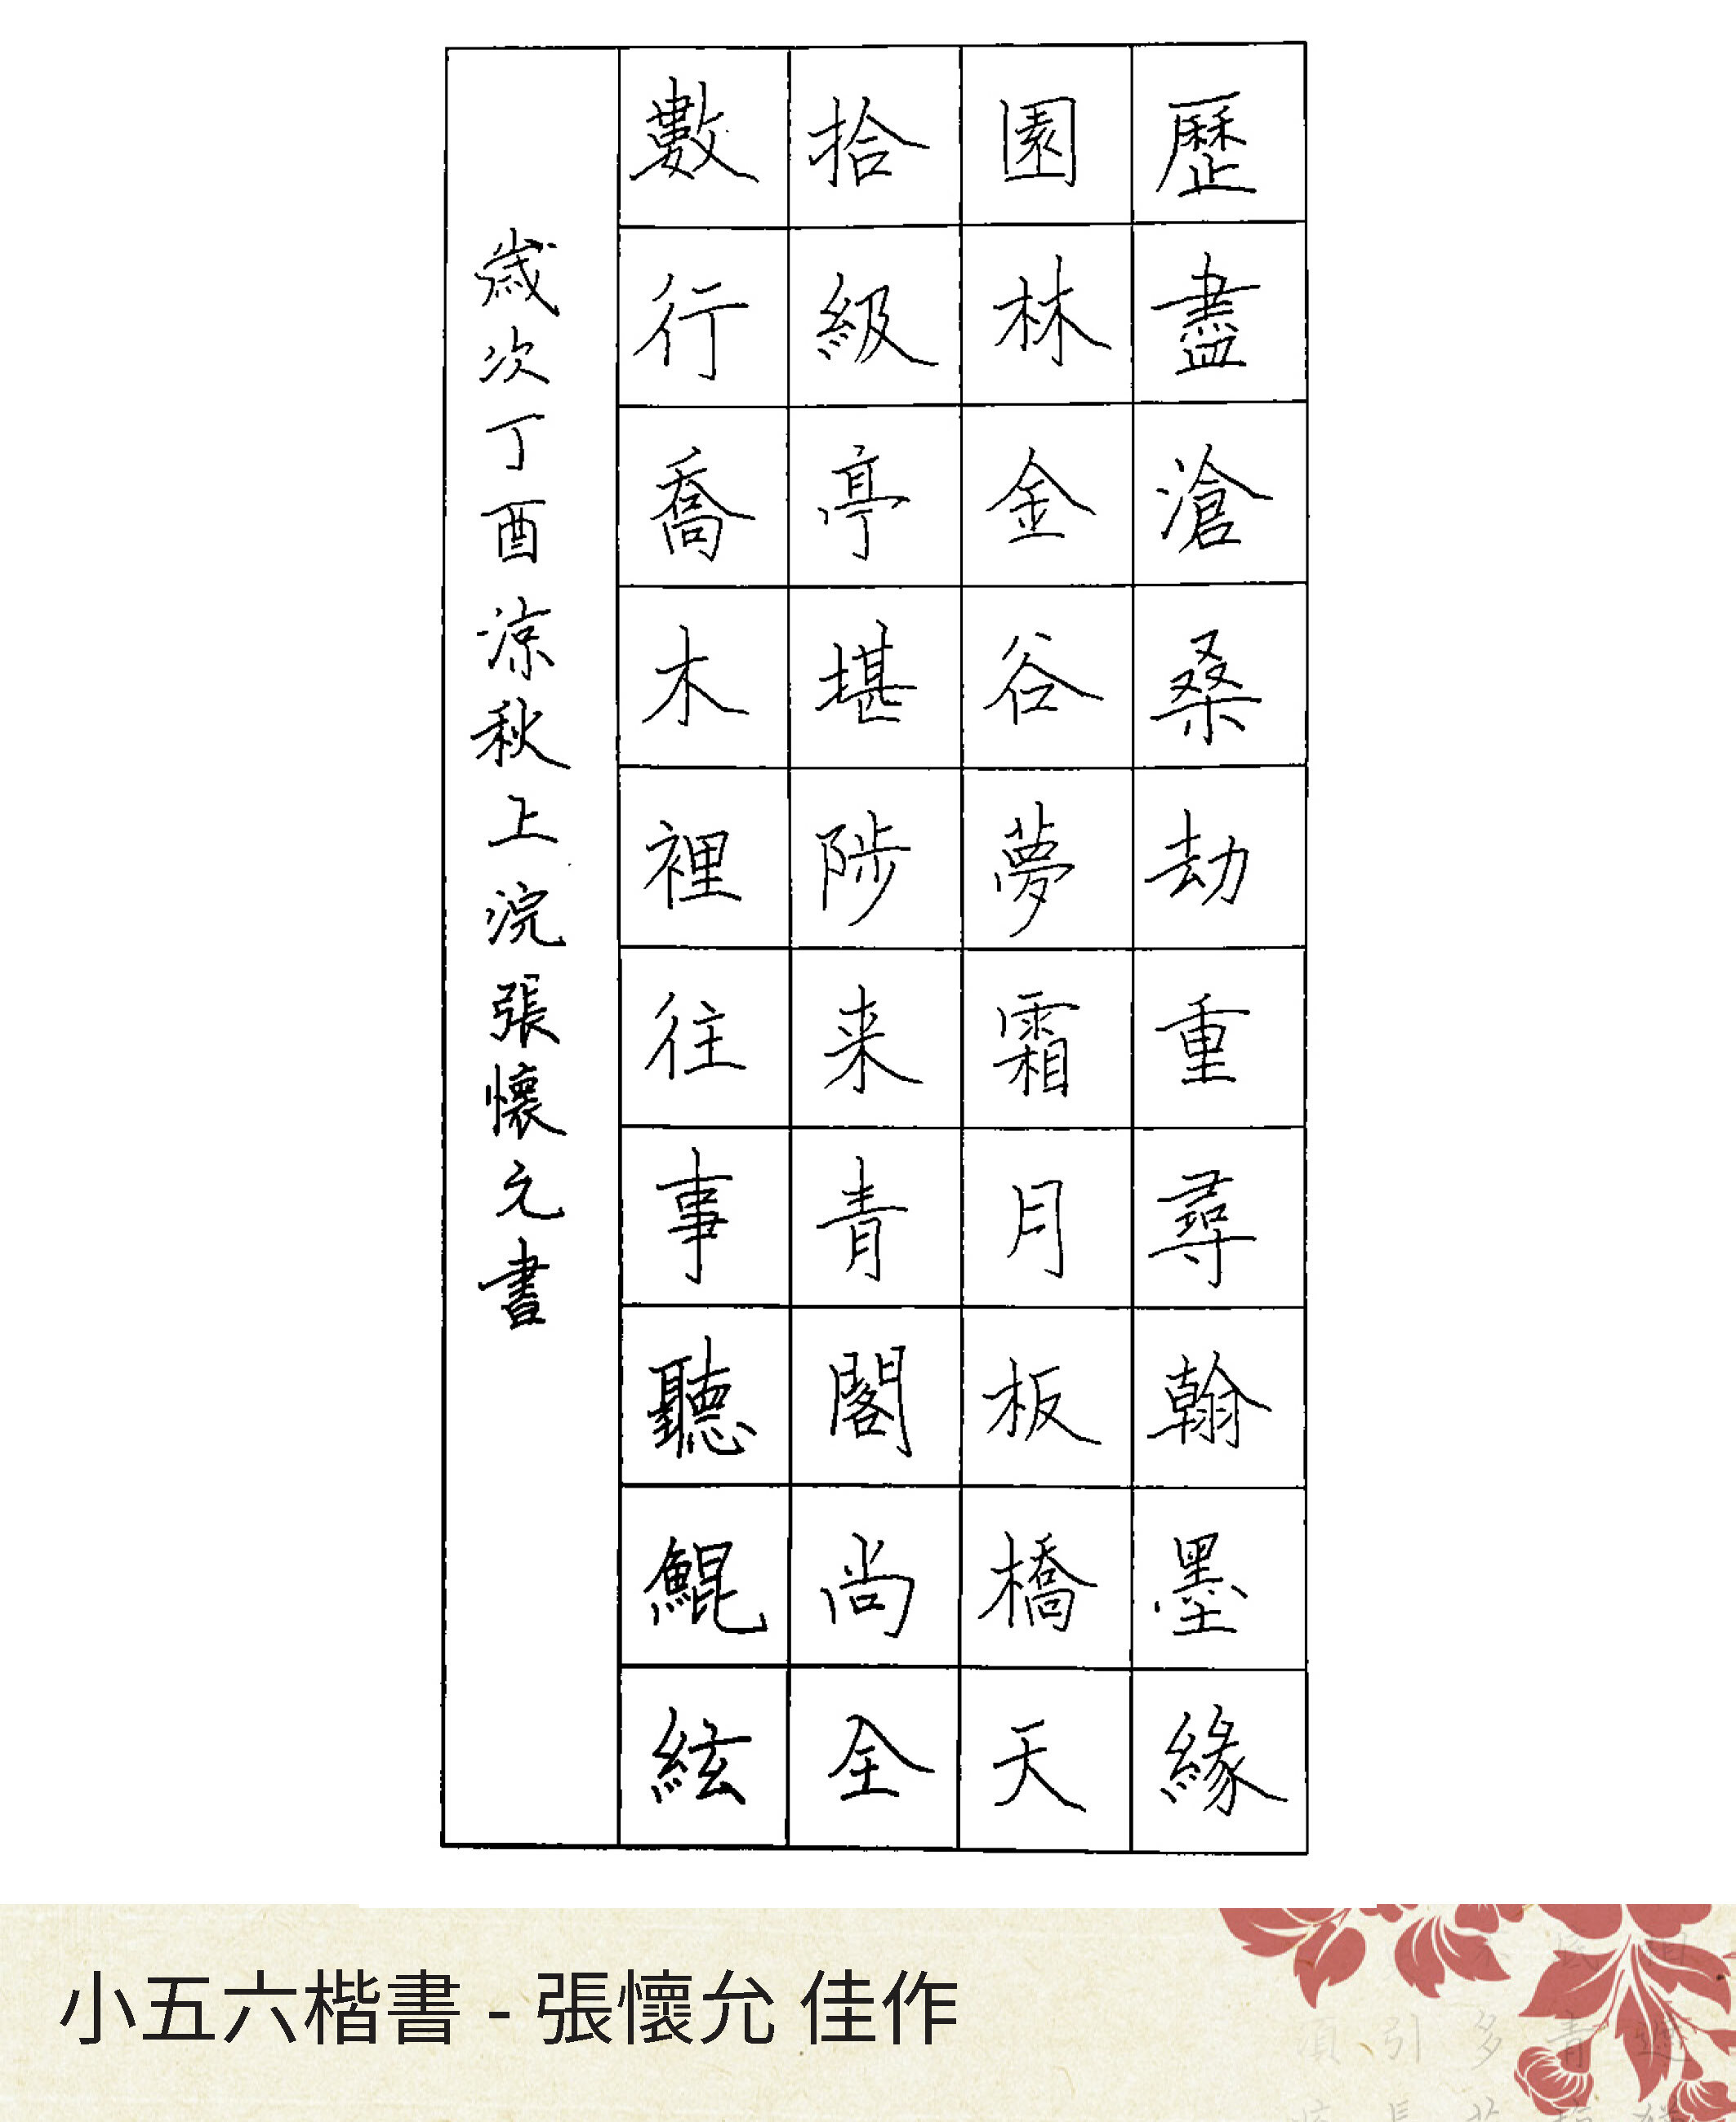 歷盡滄桑劫重尋翰墨緣
園林金谷夢霜月板橋天
拾級亭堪陟来青閣尚全
數行喬木裡往事聽鯤絃
歲次丁酉涼秋上浣張懷允書
小五六楷書 - 張懷允 佳作